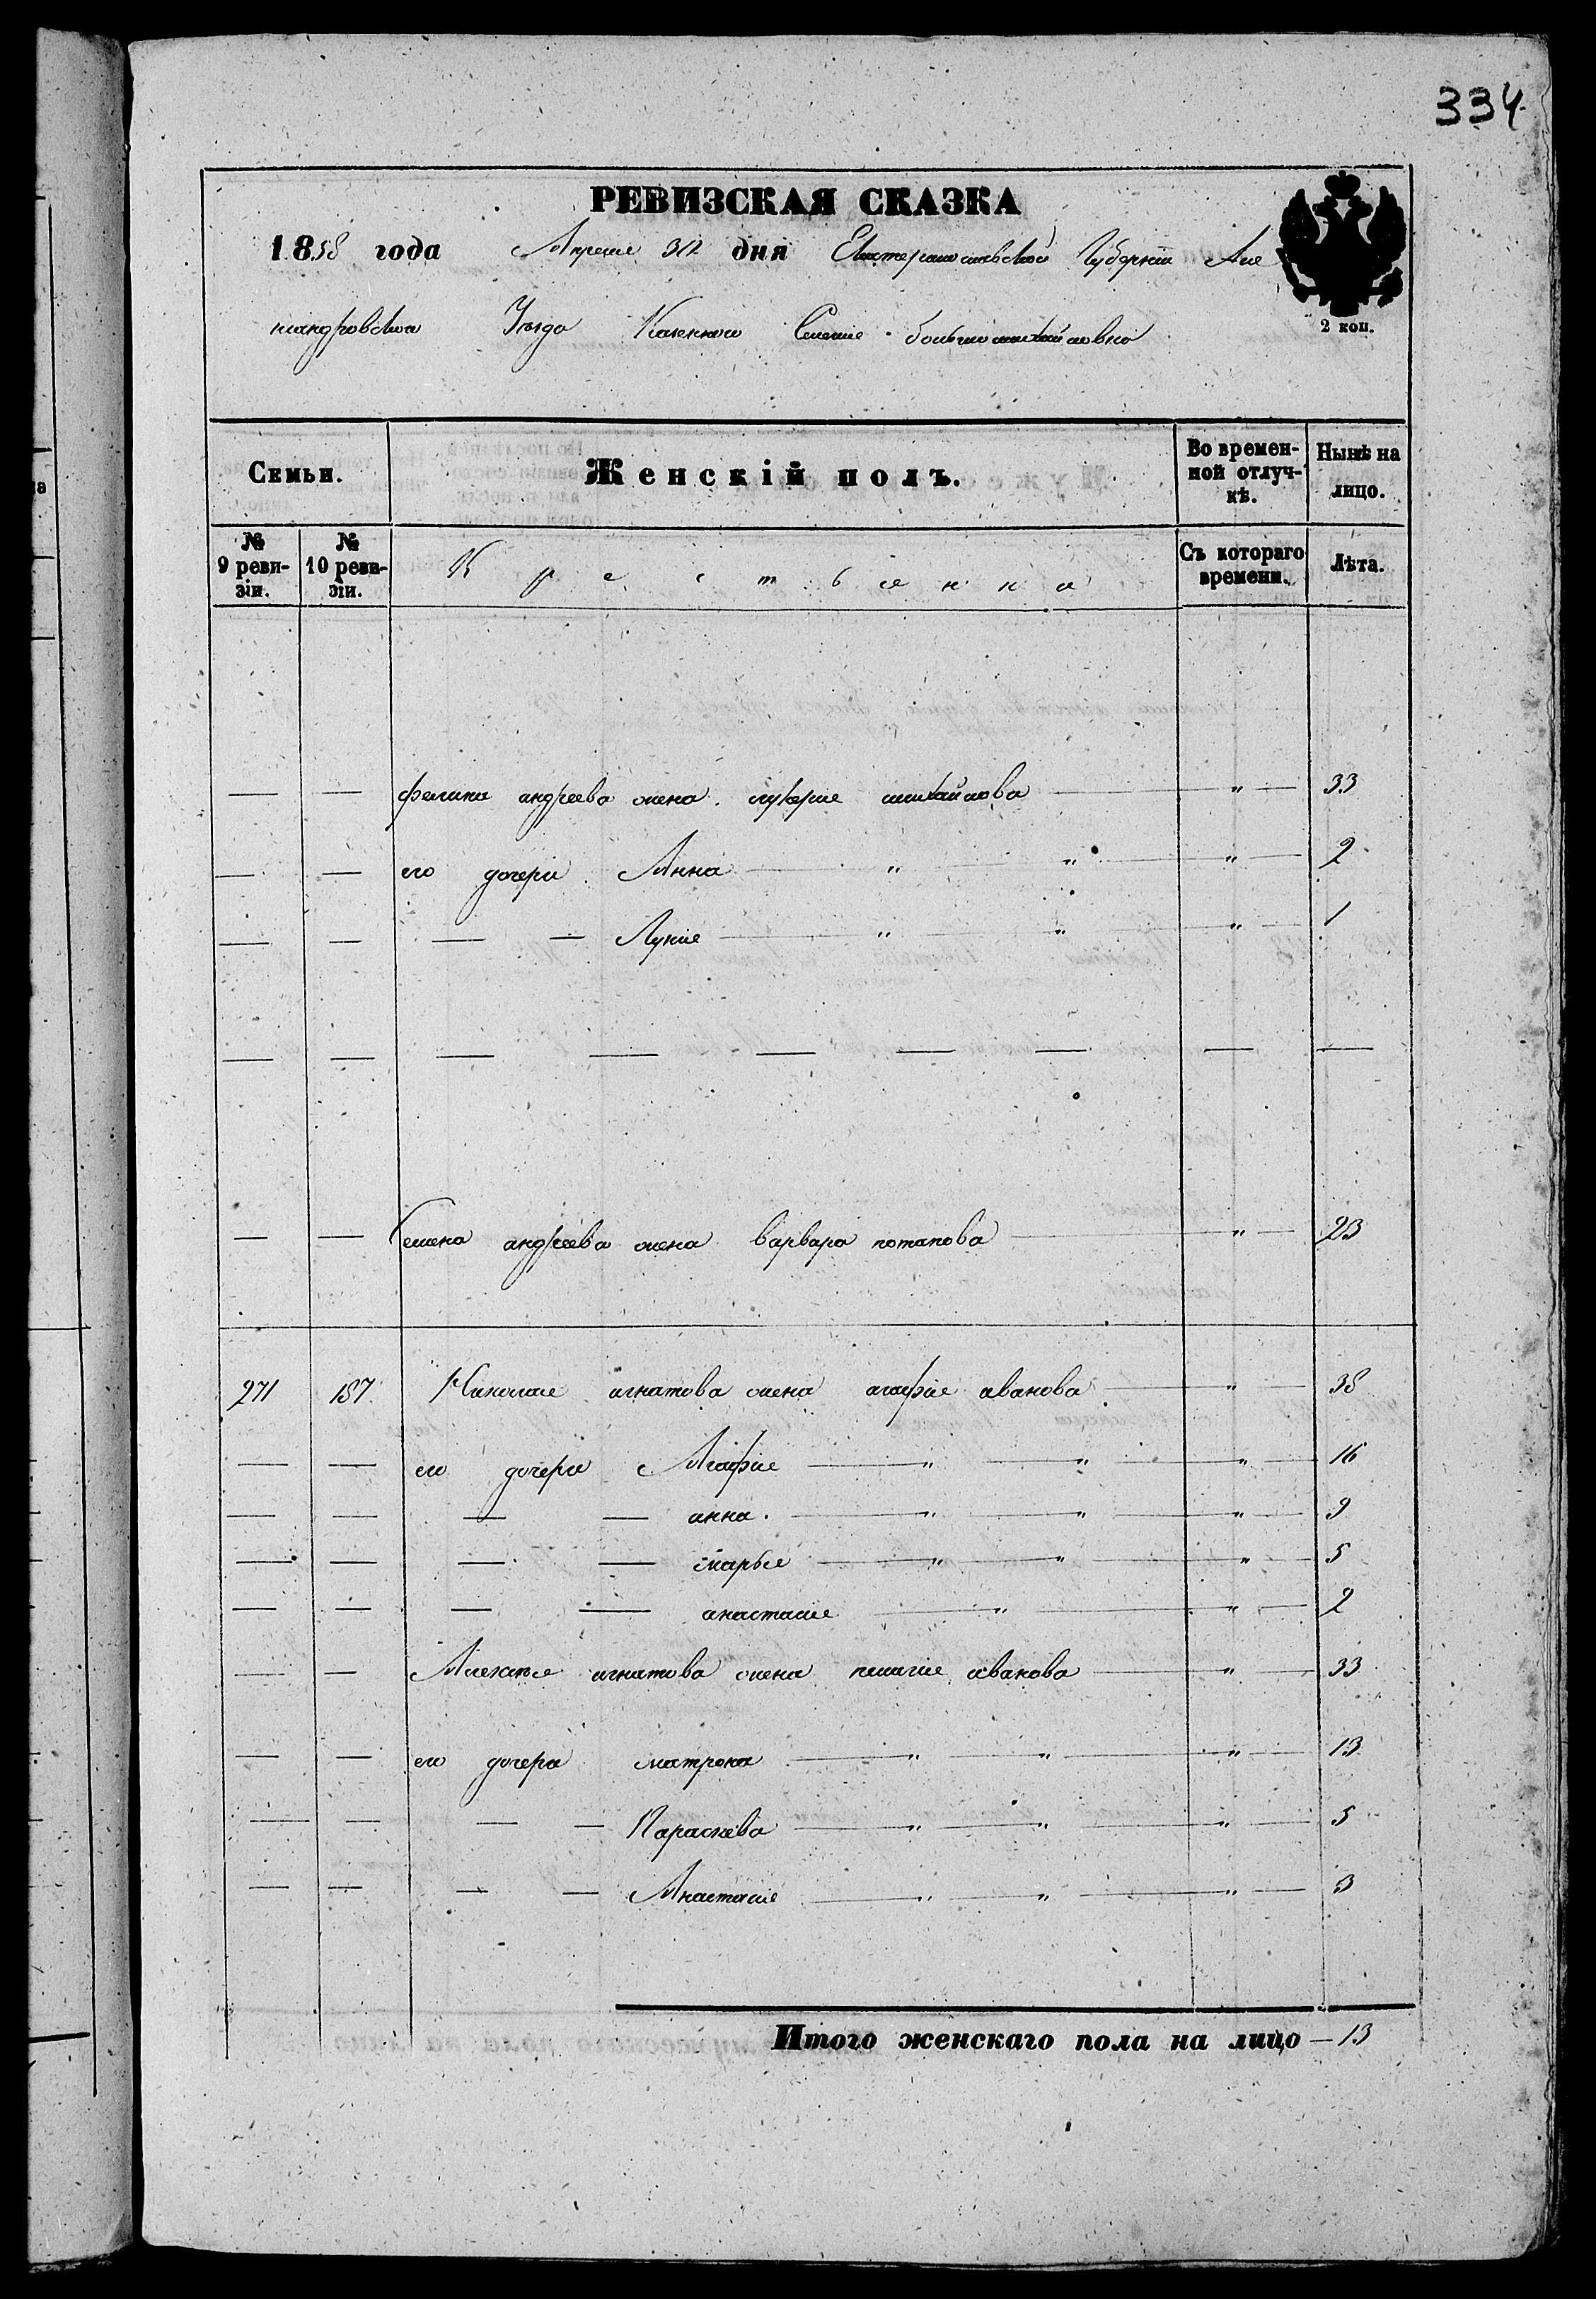 334
РЕВИЗСКАЯ СКАЗКА
1858 года Апреля 30 дня Екатеринославской Губернии Але
ксандровского Уезда Казенного Селения большомихайловки
2 коп.
Семьи. Женскій полъ. Во времен-ной отлуч-кѣ. Нынѣ на лицо.
№ 9 реви-зіи. № 10 реви-зіи. Крестьянка Съ котораго времени. Лѣта.
— — филипа андреева жена лукерия михайлова — " — 33
— — его дочери Анна — " — " — " — 2
— — — — Лукия — " — " — " — 1
— — — — — — — — —
— — Семена андреева жена варвара потапова — " — 23
271 187 Николая игнатова жена агафия иванова — " — 38
— — его дочери Агафия — " — " — " — 16
— — — — анна. — " — " — " — 9
— — — — марья — " — " — " — 5
— — — — анастасия — " — " — 2
— — игнатова жена пелагия иванова — " — 33
— — его дочери матрона — " — " — " — 13
— — — — Параскева — " — " — " — 5
— — — — Анастасия — " — " — " — 3
Итого женскаго пола на лицо — 13